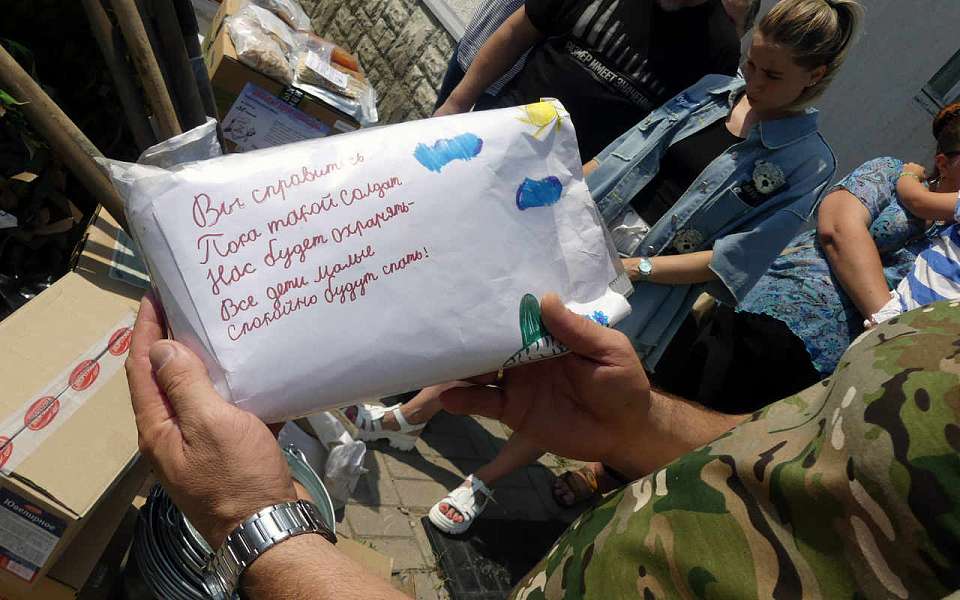 Вы справитесь
Пока такой солдат
Нас будет охранять-
Все дети малые
спокойно будут спать!
ИМЕЕТ ЗНАЧЕН
Ювелирное